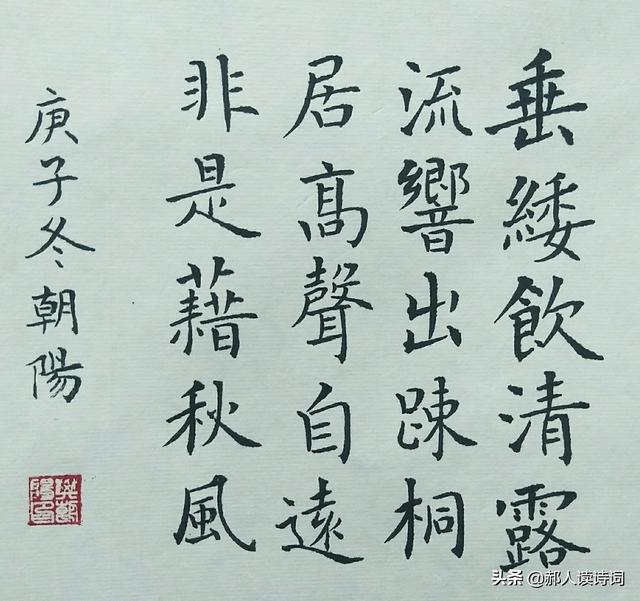 垂緌飲清露
流響出踈桐
居髙聲自遠
非是藉秋風
庚子冬朝陽
头条 @郝人读诗词